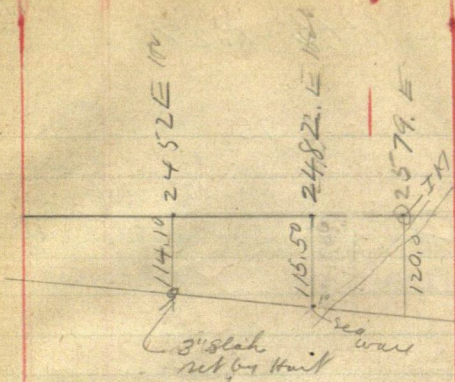 2452 E
2482. E
2579. E
114.10
115.50
120.0
3" Slab
set by Hart
Sea
wall